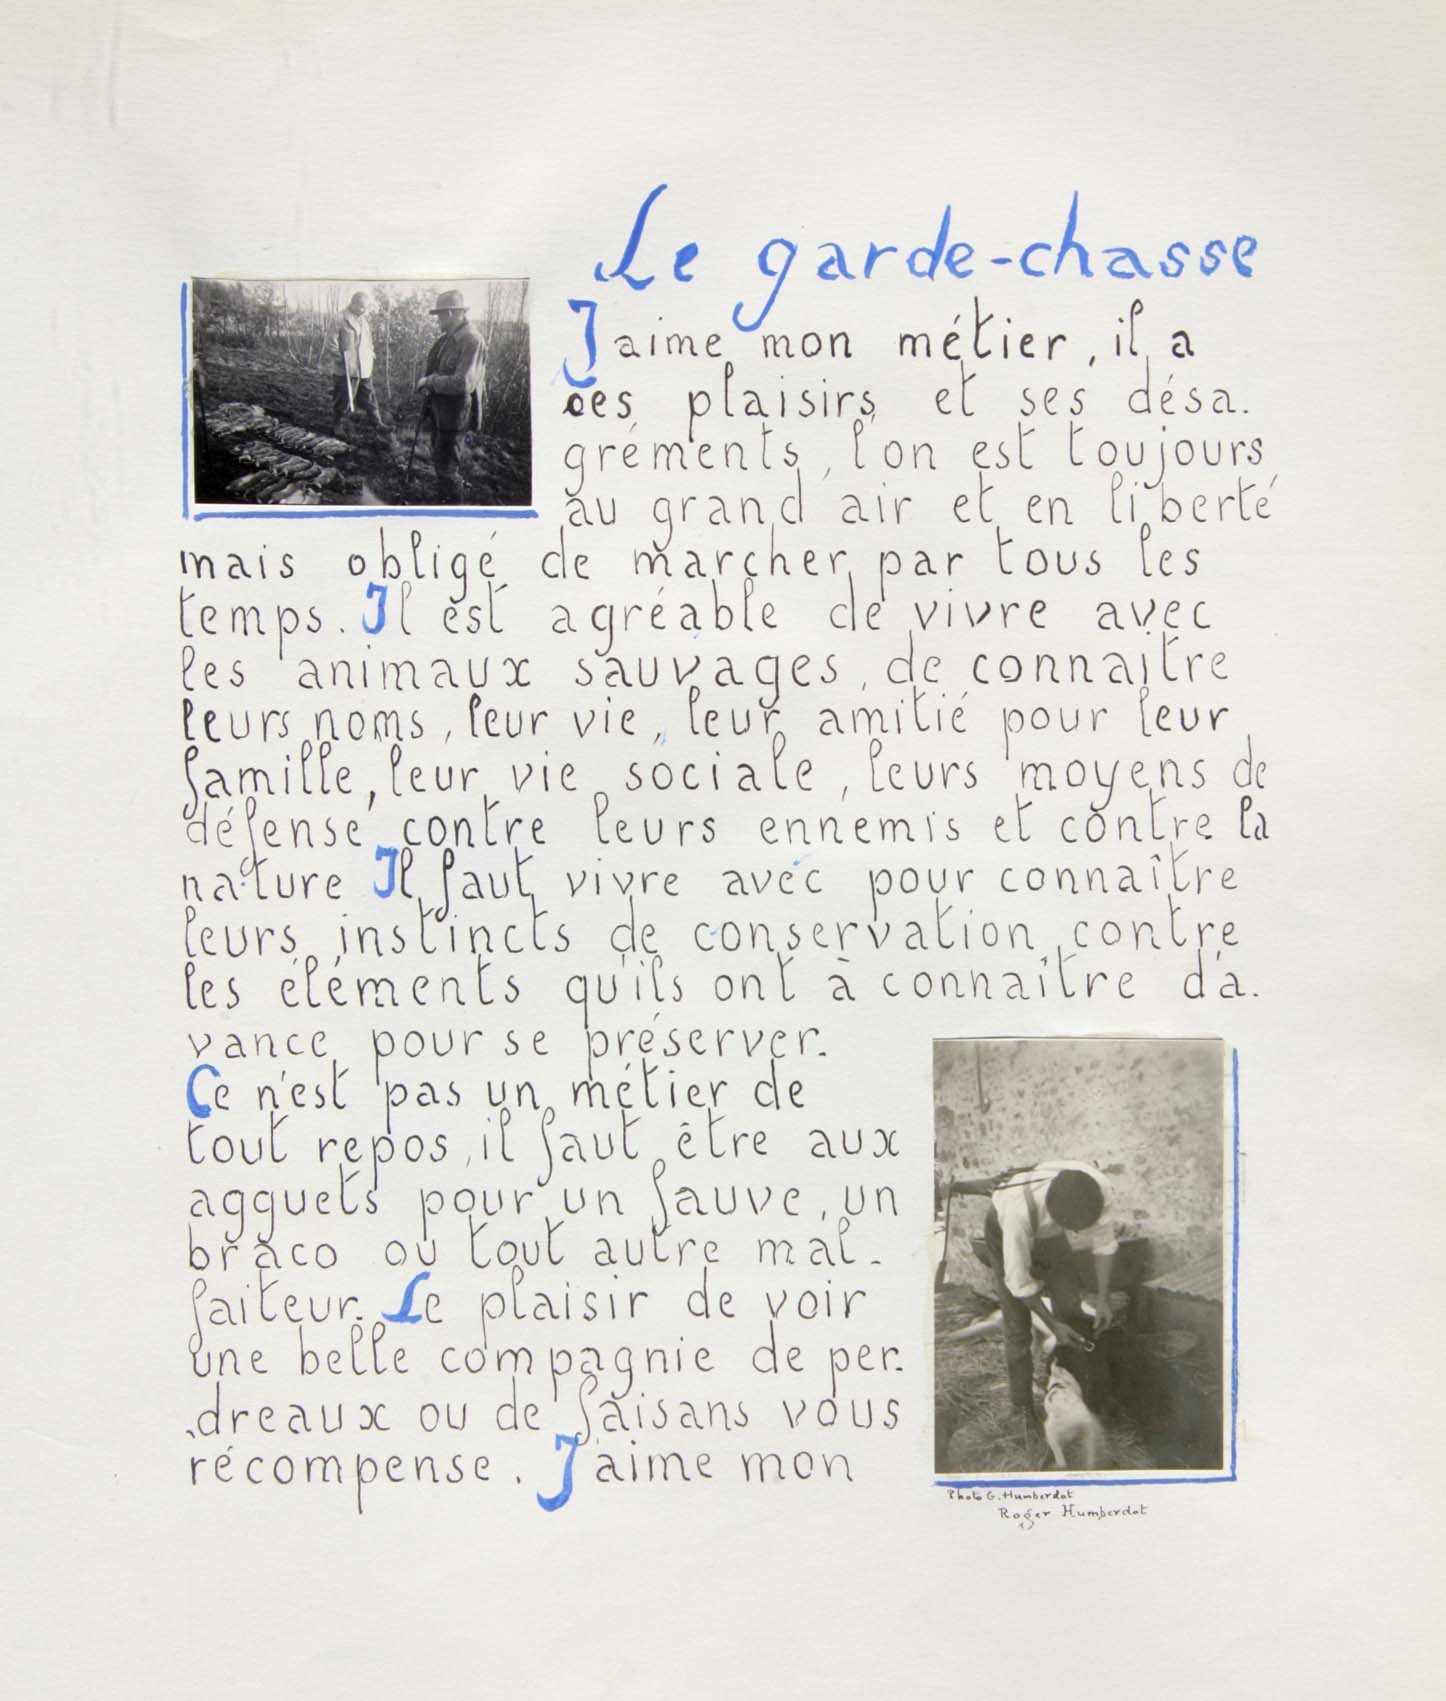 Le garde-chasse
J'aime mon métier, il a
ses plaisirs et ses désa.
gréments, l'on est toujours
au grand air et en liberté
mais obligé de marcher par tous les
temps. Il est agréable de vivre avec
les animaux sauvages, de connaitre
leurs noms, leur vie, leur amitié pour leur
famille, leur vie sociale, leurs moyens de
défense contre leurs ennemis et contre la
nature Il faut vivre avec pour connaître
leurs instincts de conservation contre
les éléments qu'ils ont à connaître d'a.
vance pour se préserver.
Ce n'est pas un métier de
tout repos, il faut être aux
agguets pour un fauve, un
braco ou tout autre mal-
faiteur. Le plaisir de voir
une belle compagnie de per.
dreaux ou de faisans vous
récompense. J'aime mon
Photo G. Humberdot
Roger Humberdot